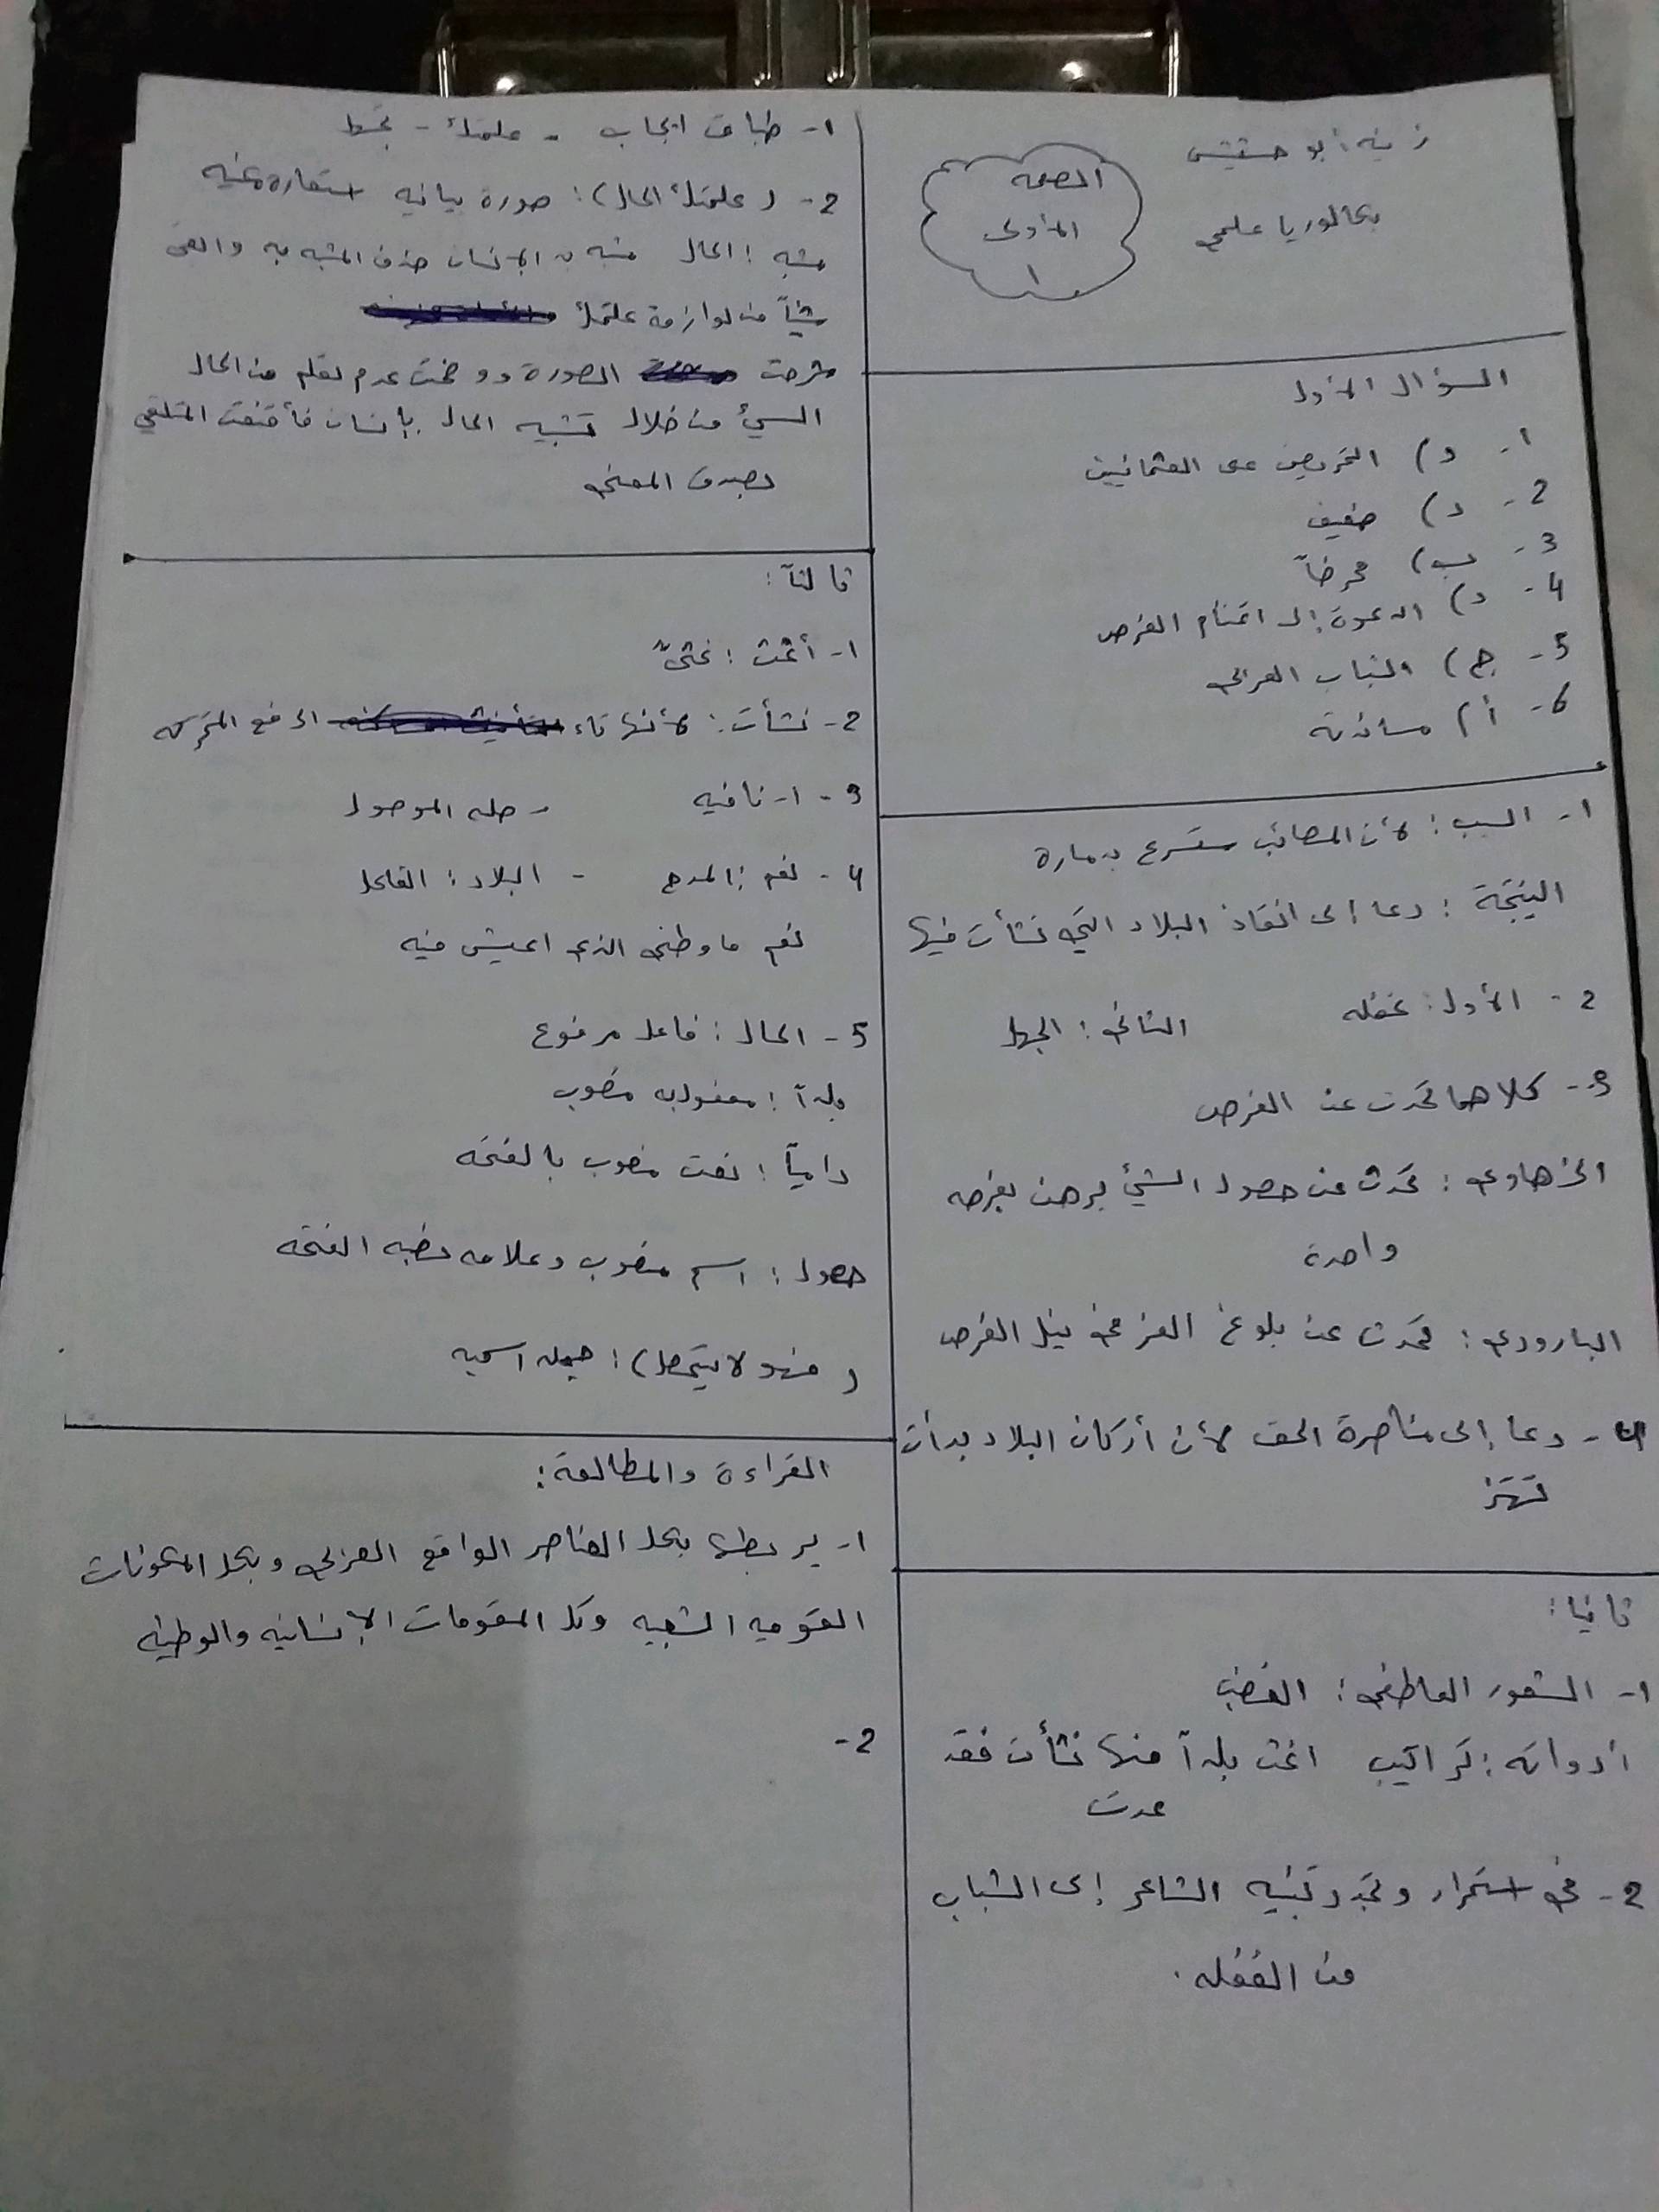 زينه أبو حشيش
بكالوريا علمي
الصفحه
الأولى
١
السؤال الأول
1- د) التحريض على العثمانيين
2- د) ضعيف
3- ب) محرضاً
4- د) الدعوة إلى اغتنام الفرص
5- ج) الشباب العربي
6- أ) مساندته
1- السبب: لأن المصائب ستسرع بدماره
النتيجة: دعا إلى انقاذ البلاد التي نشأت فيها
2- الأول: غفله الثاني: الجهل
3- كلاهما تحدث عن الفرص
الزهاوي: تحدث عن حصول الشيء يرهن بفرصه
واحدة
البارودي: تحدث عن بلوغ العز في نيل الفرص
4- دعا إلى مناصرة الحق لأن أركان البلاد بدأت
تهتز
ثانيا:
1- الشعور العاطفي: الغضب
أدواته: تراكيب اغث بلداً منها نشأت فقد
عدت
2- في استمرار وتجدد تنبيه الشاعر إلى الشباب
من الغفله.
1- طباق ايجاب - علمتك - تجهل
2- (علمتك الحال): صورة بيانيه استعارة مكنيه
مشبه: الحال شبه بـ الإنسان حذف المشبه به وابقى
شيئاً من لوازمة علمتك
شرحت الصورة ووضحت عدم تعلم من الحال
السيئ من خلال تشبيه الحال بإنسان فأقنعت المتلقي
بصدق المعنى
ثالثاً:
1- أغث: غثى
2- نشأت: لأنها تاء الرفع المتحركه
3- 1- نافيه - صله الموصول
4- نعم: المدح - البلاد: الفاعل
نعم ما وطني الذي اعيش فيه
5- الحال: فاعل مرفوع
بلداً: مفعول به منصوب
دامياً: نعت منصوب بالفتحه
حصول: اسم منصوب وعلامه نصبه الفتحه
(فهو لا يتحصل): جمله اسميه
القراءة والمطالعة:
1- يربطها بكل العناصر الواقع العربي وبكل المكونات
القوميه الشعبيه وكل المقومات الإنسانيه والوطنيه
2-